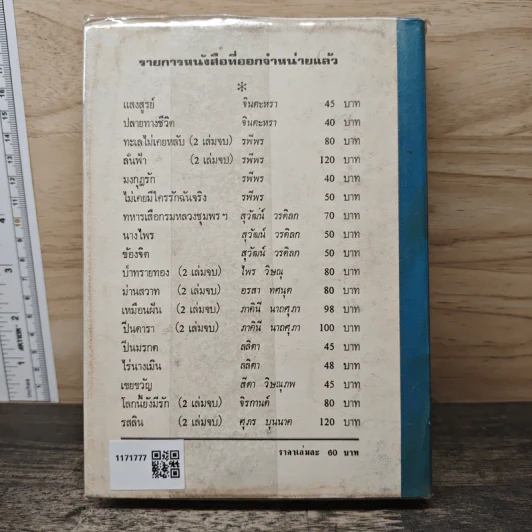 รายการหนังสือที่ออกจำหน่ายแล้ว
*
แสงสูรย์ จินตะหรา 45 บาท
ปลายทางชีวิต จินตะหรา 40 บาท
ทะเลไม่เคยหลับ (2 เล่มจบ) รพีพร 80 บาท
ล้นฟ้า (2 เล่มจบ) รพีพร 120 บาท
มงกุฎรัก รพีพร 40 บาท
ไม่เคยมีใครรักฉันจริง รพีพร 50 บาท
ทหารเสือกรมหลวงชุมพรฯ สุวัฒน์ วรดิลก 70 บาท
นางไพร สุวัฒน์ วรดิลก 50 บาท
ข้องจิต สุวัฒน์ วรดิลก 50 บาท
ป่าทรายทอง (2 เล่มจบ) ไพร วิษณุ 80 บาท
ม่านสวาท (2 เล่มจบ) อรสา ทศนุต 80 บาท
เหมือนฝัน (2 เล่มจบ) ภาคินี นาถศุภา 98 บาท
ปืนดารา (2 เล่มจบ) ภาคินี นาถศุภา 100 บาท
ปีนมรกต ลลิตา 45 บาท
ไร่นางเมิน ลลิตา 48 บาท
เชยขวัญ สีดา วิษณุภพ 45 บาท
โลกนี้ยังมีรัก (2 เล่มจบ) จิรกานต์ 80 บาท
รสลิน (2 เล่มจบ) ศุภร บุนนาค 120 บาท
ราคาเล่มละ 60 บาท
1171777